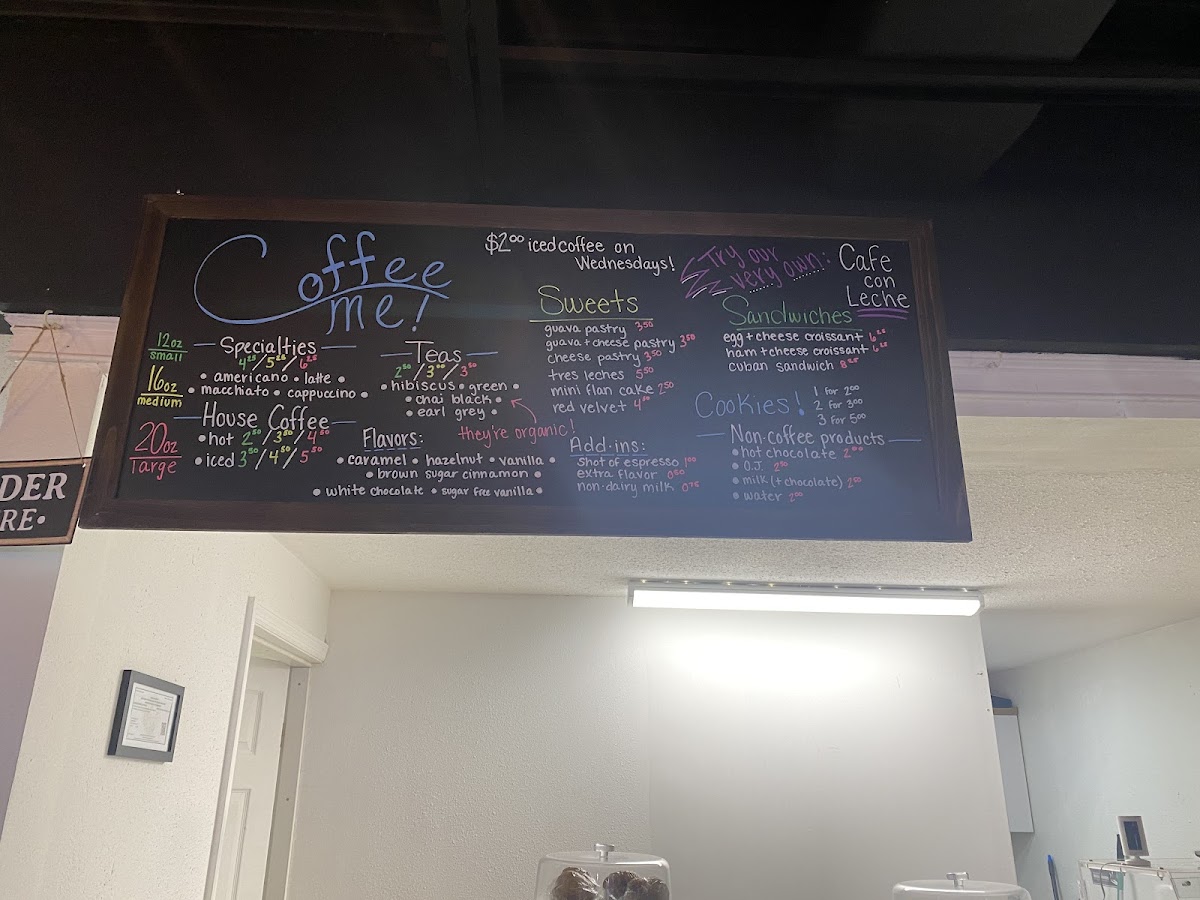 Coffee
me!
$2.00 iced coffee on
Wednesdays!
Try our
very own:
Cafe
con
Leche
12oz
small
16oz
medium
20oz
large
Specialties
4.25/5.25/6.25
• americano • latte •
• macchiato • cappuccino •
House Coffee
• hot 2.50/3.50/4.50
• iced 3.50/4.50/5.50
Teas
2.50/3.00/3.50
• hibiscus • green •
• chai black •
• earl grey •
they're organic!
Flavors:
• caramel • hazelnut • vanilla •
• brown sugar cinnamon •
• white chocolate • sugar free vanilla •
Sweets
guava pastry 3.50
guava + cheese pastry 3.50
cheese pastry 3.50
tres leches 5.50
mini flan cake 2.50
red velvet 4.50
Add-ins:
shot of espresso 1.00
extra flavor 0.50
non-dairy milk 0.75
Sandwiches
egg + cheese croissant 6.25
ham + cheese croissant 6.25
cuban sandwich 8.25
Cookies!
1 for 2.00
2 for 3.00
3 for 5.00
Non-coffee products
• hot chocolate 2.00
• O.J. 2.50
• milk (+ chocolate) 2.50
• water 2.00
DER
RE•